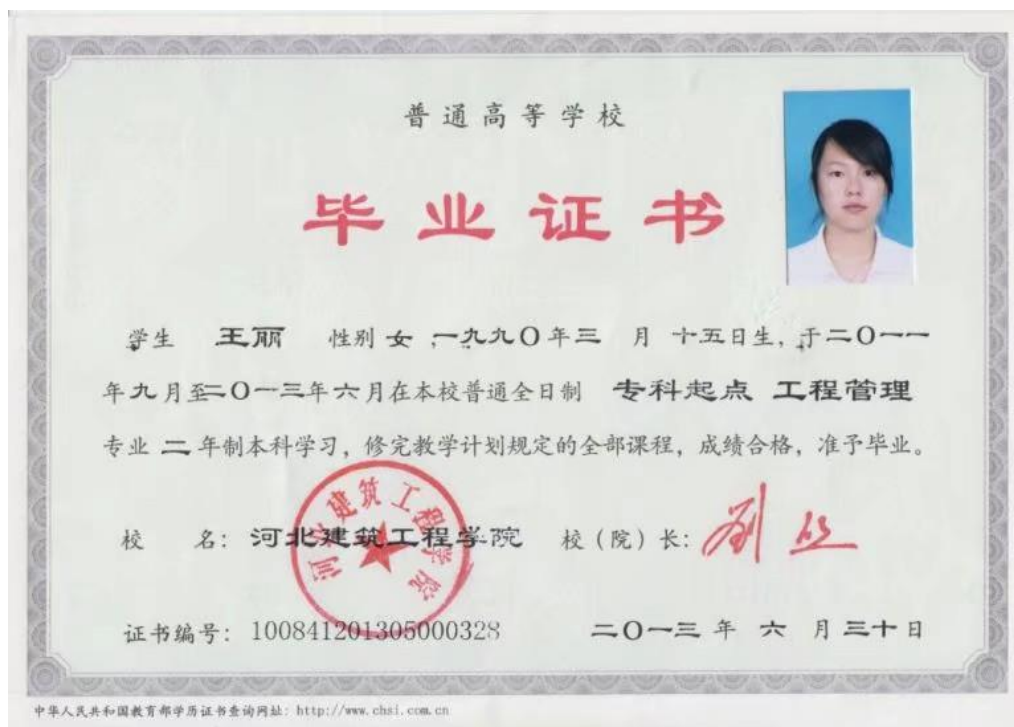 普通高等学校
毕业证书
学生 王丽 性别 女 ,一九九〇年三 月 十五日生,于二〇一一
年九月至二〇一三年六月在本校普通全日制 专科起点 工程管理
专业 二 年制本科学习,修完教学计划规定的全部课程,成绩合格,准予毕业。
河北建筑工程学院
校 名: 河北建筑工程学院 校(院)长:
证书编号: 100841201305000328 二〇一三 年 六 月 三十日
中华人民共和国教育部学历证书查询网址: http://www.chsi.com.cn